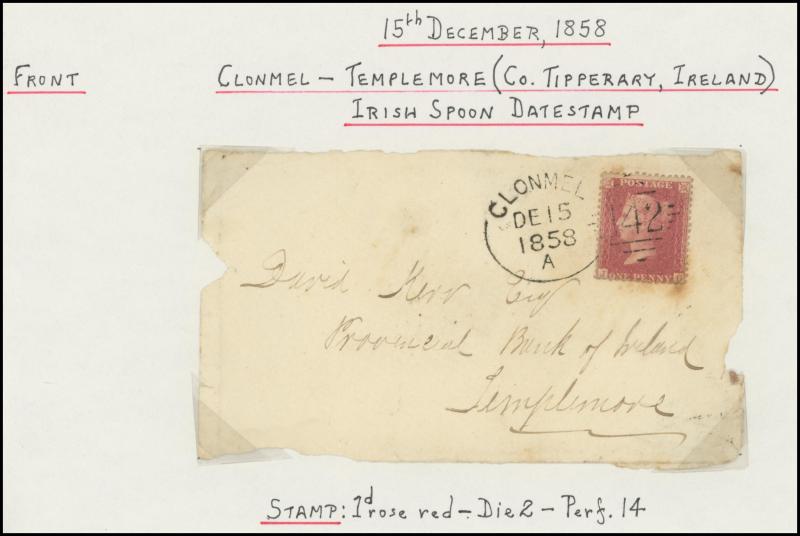 15th DECEMBER, 1858
FRONT
CLONMEL - TEMPLEMORE (CO. TIPPERARY, IRELAND)
IRISH SPOON DATESTAMP
CLONMEL
DE 15
1858
A
POSTAGE
42
ONE PENNY
David Kerr Esq
Provincial Bank of Ireland
Templemore
STAMP: 1d rose red - Die 2 - Perf. 14